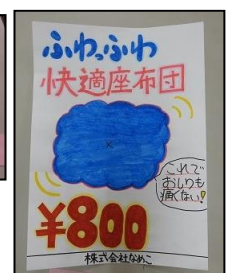 ふわっふわ
快適座布団
これで
おしりも
痛くない!
¥800
株式会社なめこ